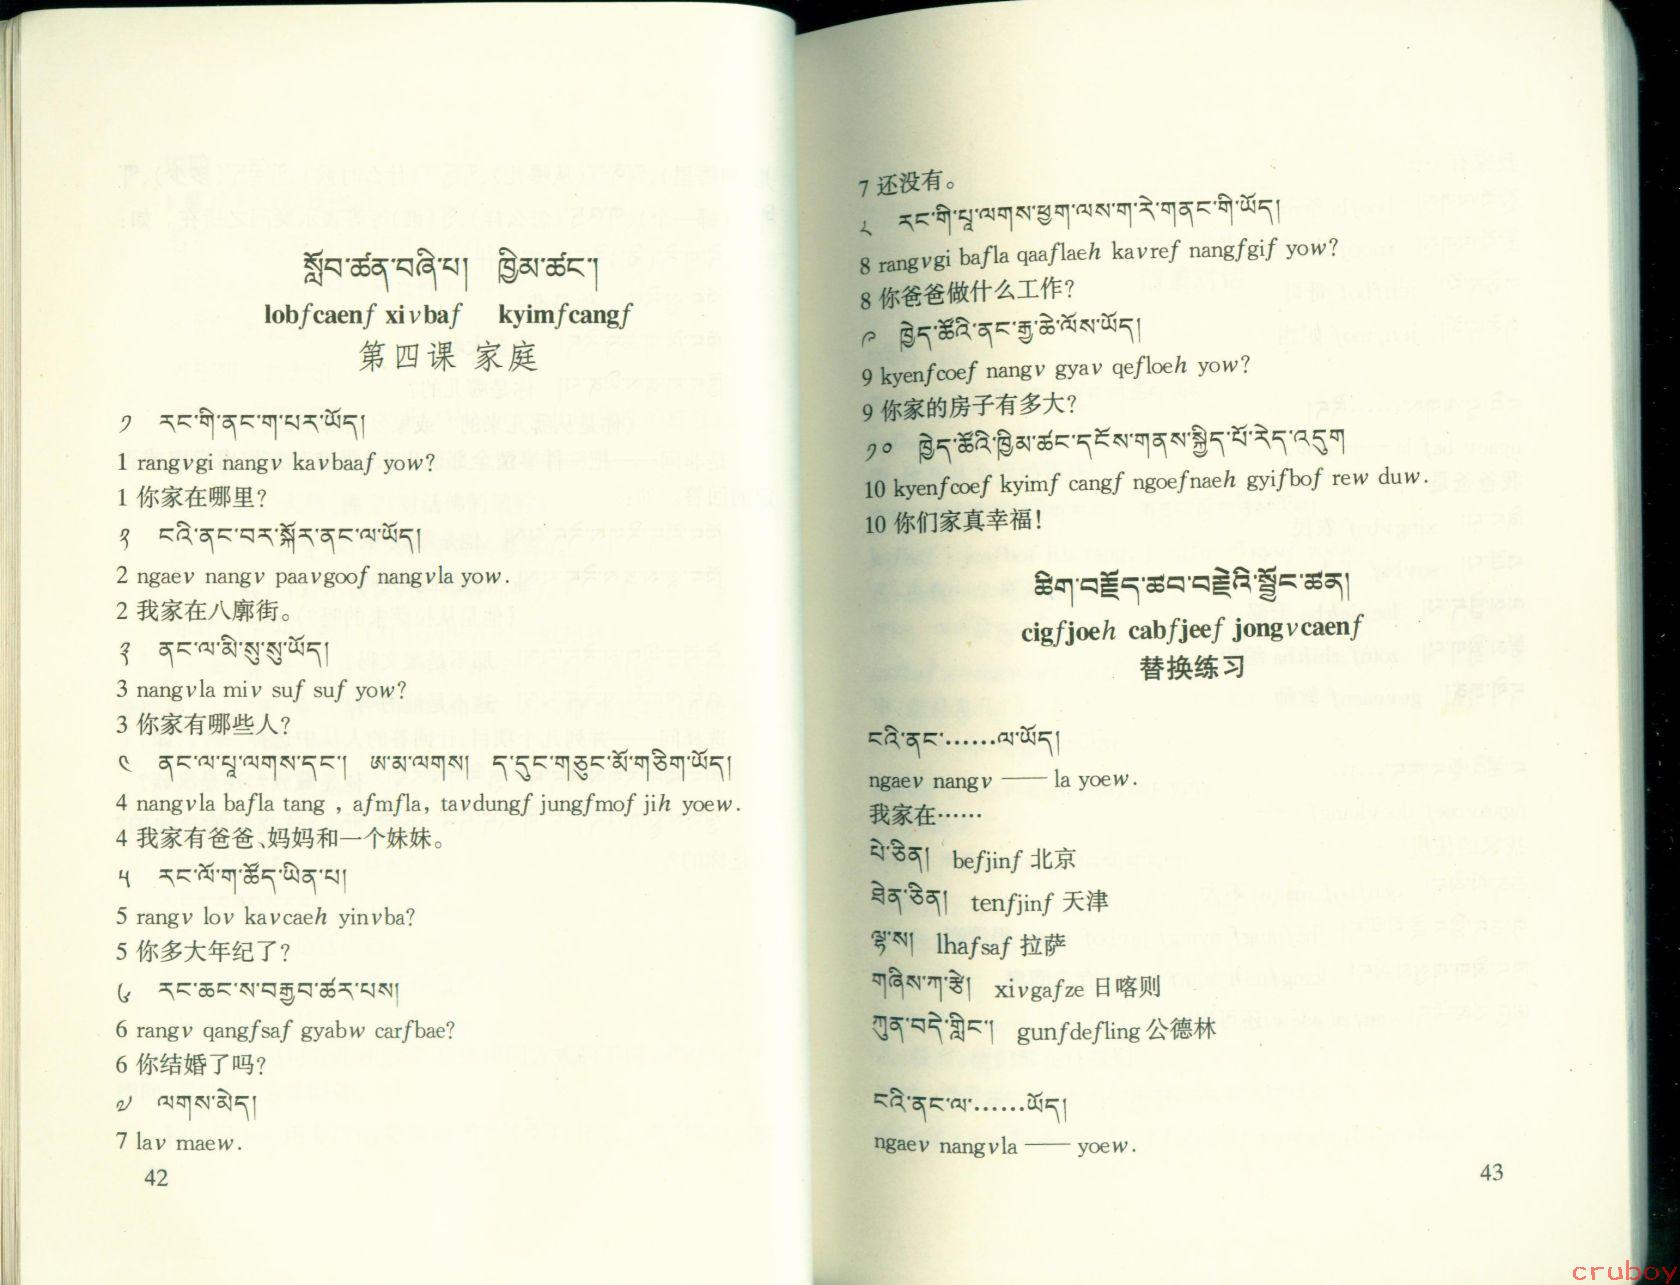 སློབ་ཚན་བཞི་པ། ཁྱིམ་ཚང་།
lobfcaenf xivbaf kyimfcangf
第四课 家庭
༡ རང་གི་ནང་ག་པར་ཡོད།
1 rangvgi nangv kavbaaf yow?
1 你家在哪里?
༢ ངའི་ནང་བར་སྐོར་ནང་ལ་ཡོད།
2 ngaev nangv paavgoof nangvla yow.
2 我家在八廓街。
༣ ནང་ལ་མི་སུ་སུ་ཡོད།
3 nangvla miv suf suf yow?
3 你家有哪些人?
༤ ནང་ལ་པཱ་ལགས་དང་། ཨ་མ་ལགས། ད་དུང་གཅུང་མོ་གཅིག་ཡོད།
4 nangvla bafla tang , afmfla, tavdungf jungfmof jih yoew.
4 我家有爸爸、妈妈和一个妹妹。
༥ རང་ལོ་ག་ཚོད་ཡིན་པ།
5 rangv lov kavcaeh yinvba?
5 你多大年纪了?
༦ རང་ཆང་ས་བརྒྱབ་ཚར་པས།
6 rangv qangfsaf gyabw carfbae?
6 你结婚了吗?
༧ ལགས་མེད།
7 lav maew.
42
7 还没有。
༨ རང་གི་པཱ་ལགས་ཕྱག་ལས་ག་རེ་གནང་གི་ཡོད།
8 rangvgi bafla qaaflaeh kavref nangfgif yow?
8 你爸爸做什么工作?
༩ ཁྱེད་ཚོའི་ནང་རྒྱ་ཆེ་ལོས་ཡོད།
9 kyenfcoef nangv gyav qefloeh yow?
9 你家的房子有多大?
༡༠ ཁྱེད་ཚོའི་ཁྱིམ་ཚང་དངོས་གནས་སྐྱིད་པོ་རེད་འདུག
10 kyenfcoef kyimf cangf ngoefnaeh gyifbof rew duw.
10 你们家真幸福!
ཚིག་བརྗོད་ཚབ་བརྗེའི་སྦྱོང་ཚན།
cigfjoeh cabfjeef jongvcaenf
替换练习
ངའི་ནང་……ལ་ཡོད།
ngaev nangv —— la yoew.
我家在……
པེ་ཅིན། befjinf 北京
ཐེན་ཅིན། tenfjinf 天津
ལྷ་ས། lhafsaf 拉萨
གཞིས་ཀ་རྩེ། xivgafze 日喀则
ཀུན་བདེ་གླིང་། gunfdefling 公德林
ངའི་ནང་ལ་……ཡོད།
ngaev nangvla —— yoew.
43
cruboy